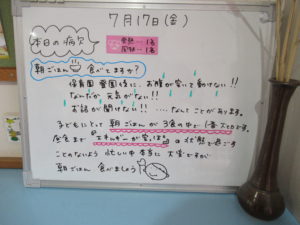 7月17日(金)
本日の病欠
発熱…1名
風邪…1名
朝ごはん 食べてますか?
保育園 登園後に、お腹が空いて動けない!!
なんだか 元気がない!!
お話が聞けない!! ……なんてことがあります。
子どもにとって 朝ごはんが 3食の中で 1番大切です。
昼食まで "エネルギーが空っぽ" の状態で過ごす
ことのないよう 忙しい中 本当に 大変ですが
朝ごはん 食べましょう